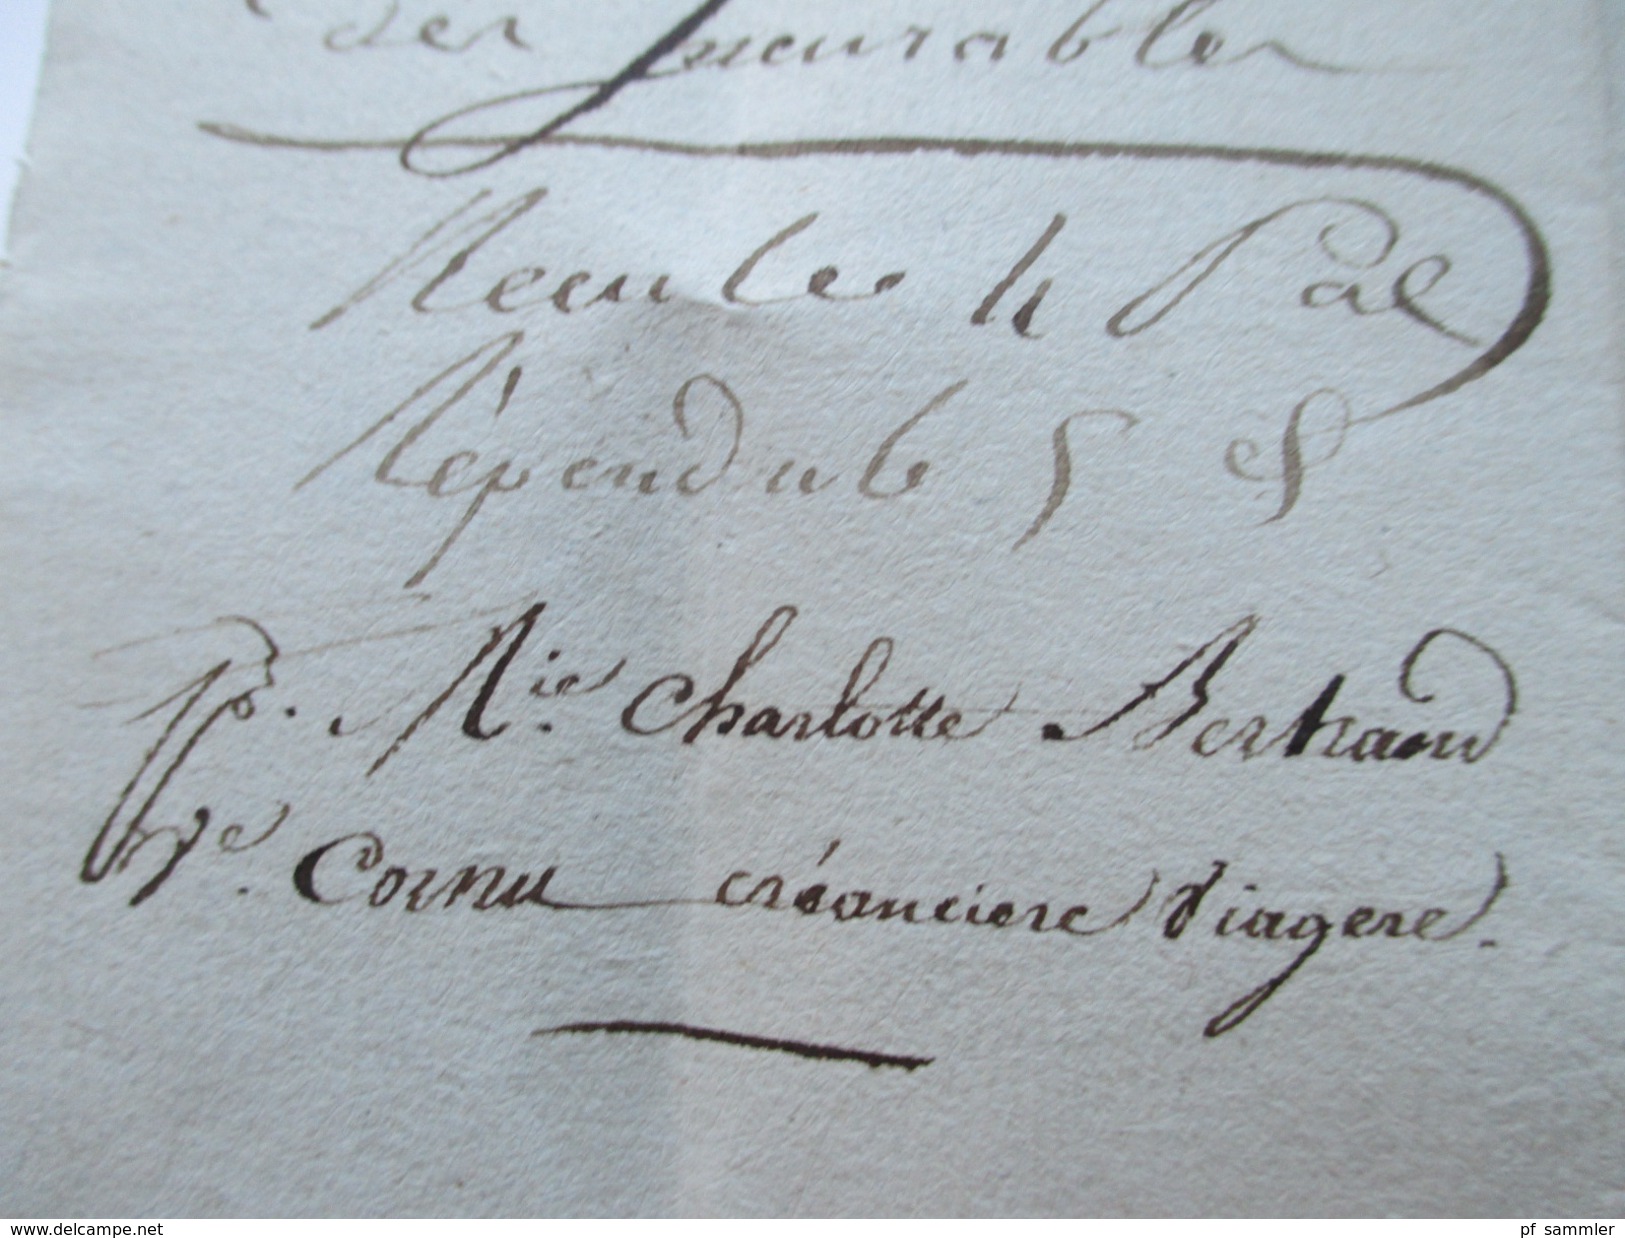 des Incurables
Reçu le 4 Pal
Répondu le 5 d°
p. M.ie Charlotte Bertrand
V.e Cornu créancière viagere.
www.delcampe.net
pf_sammler